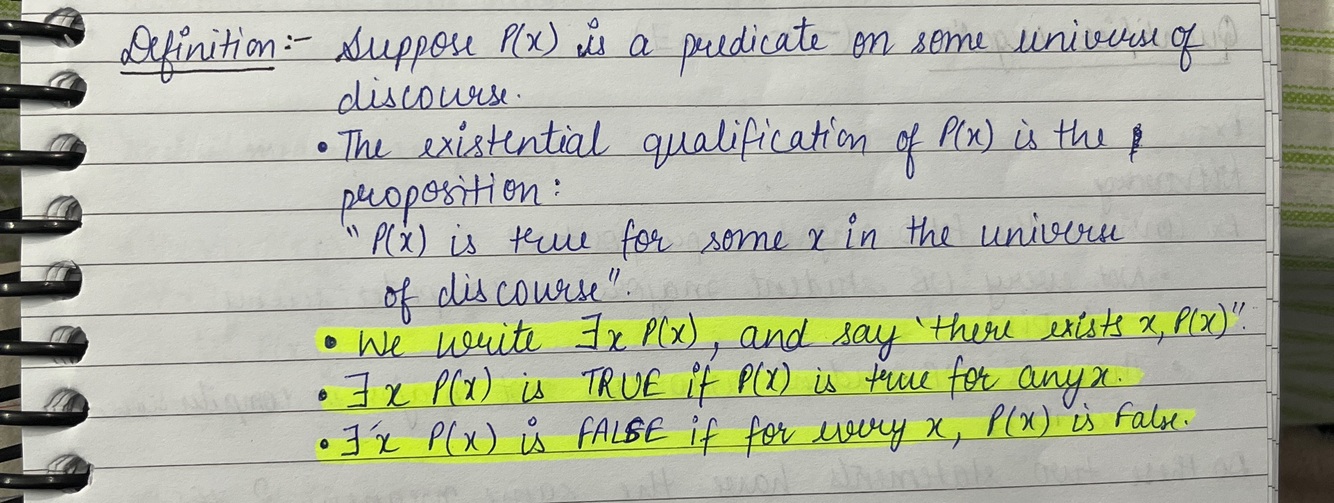 Definition:- Suppose P(x) is a predicate on some universe of
discourse.
• The existential qualification of P(x) is the
proposition:
"P(x) is true for some x in the universe
of discourse".
• We write ∃x P(x), and say "there exists x, P(x)".
• ∃x P(x) is TRUE if P(x) is true for any x.
• ∃x P(x) is FALSE if for every x, P(x) is False.